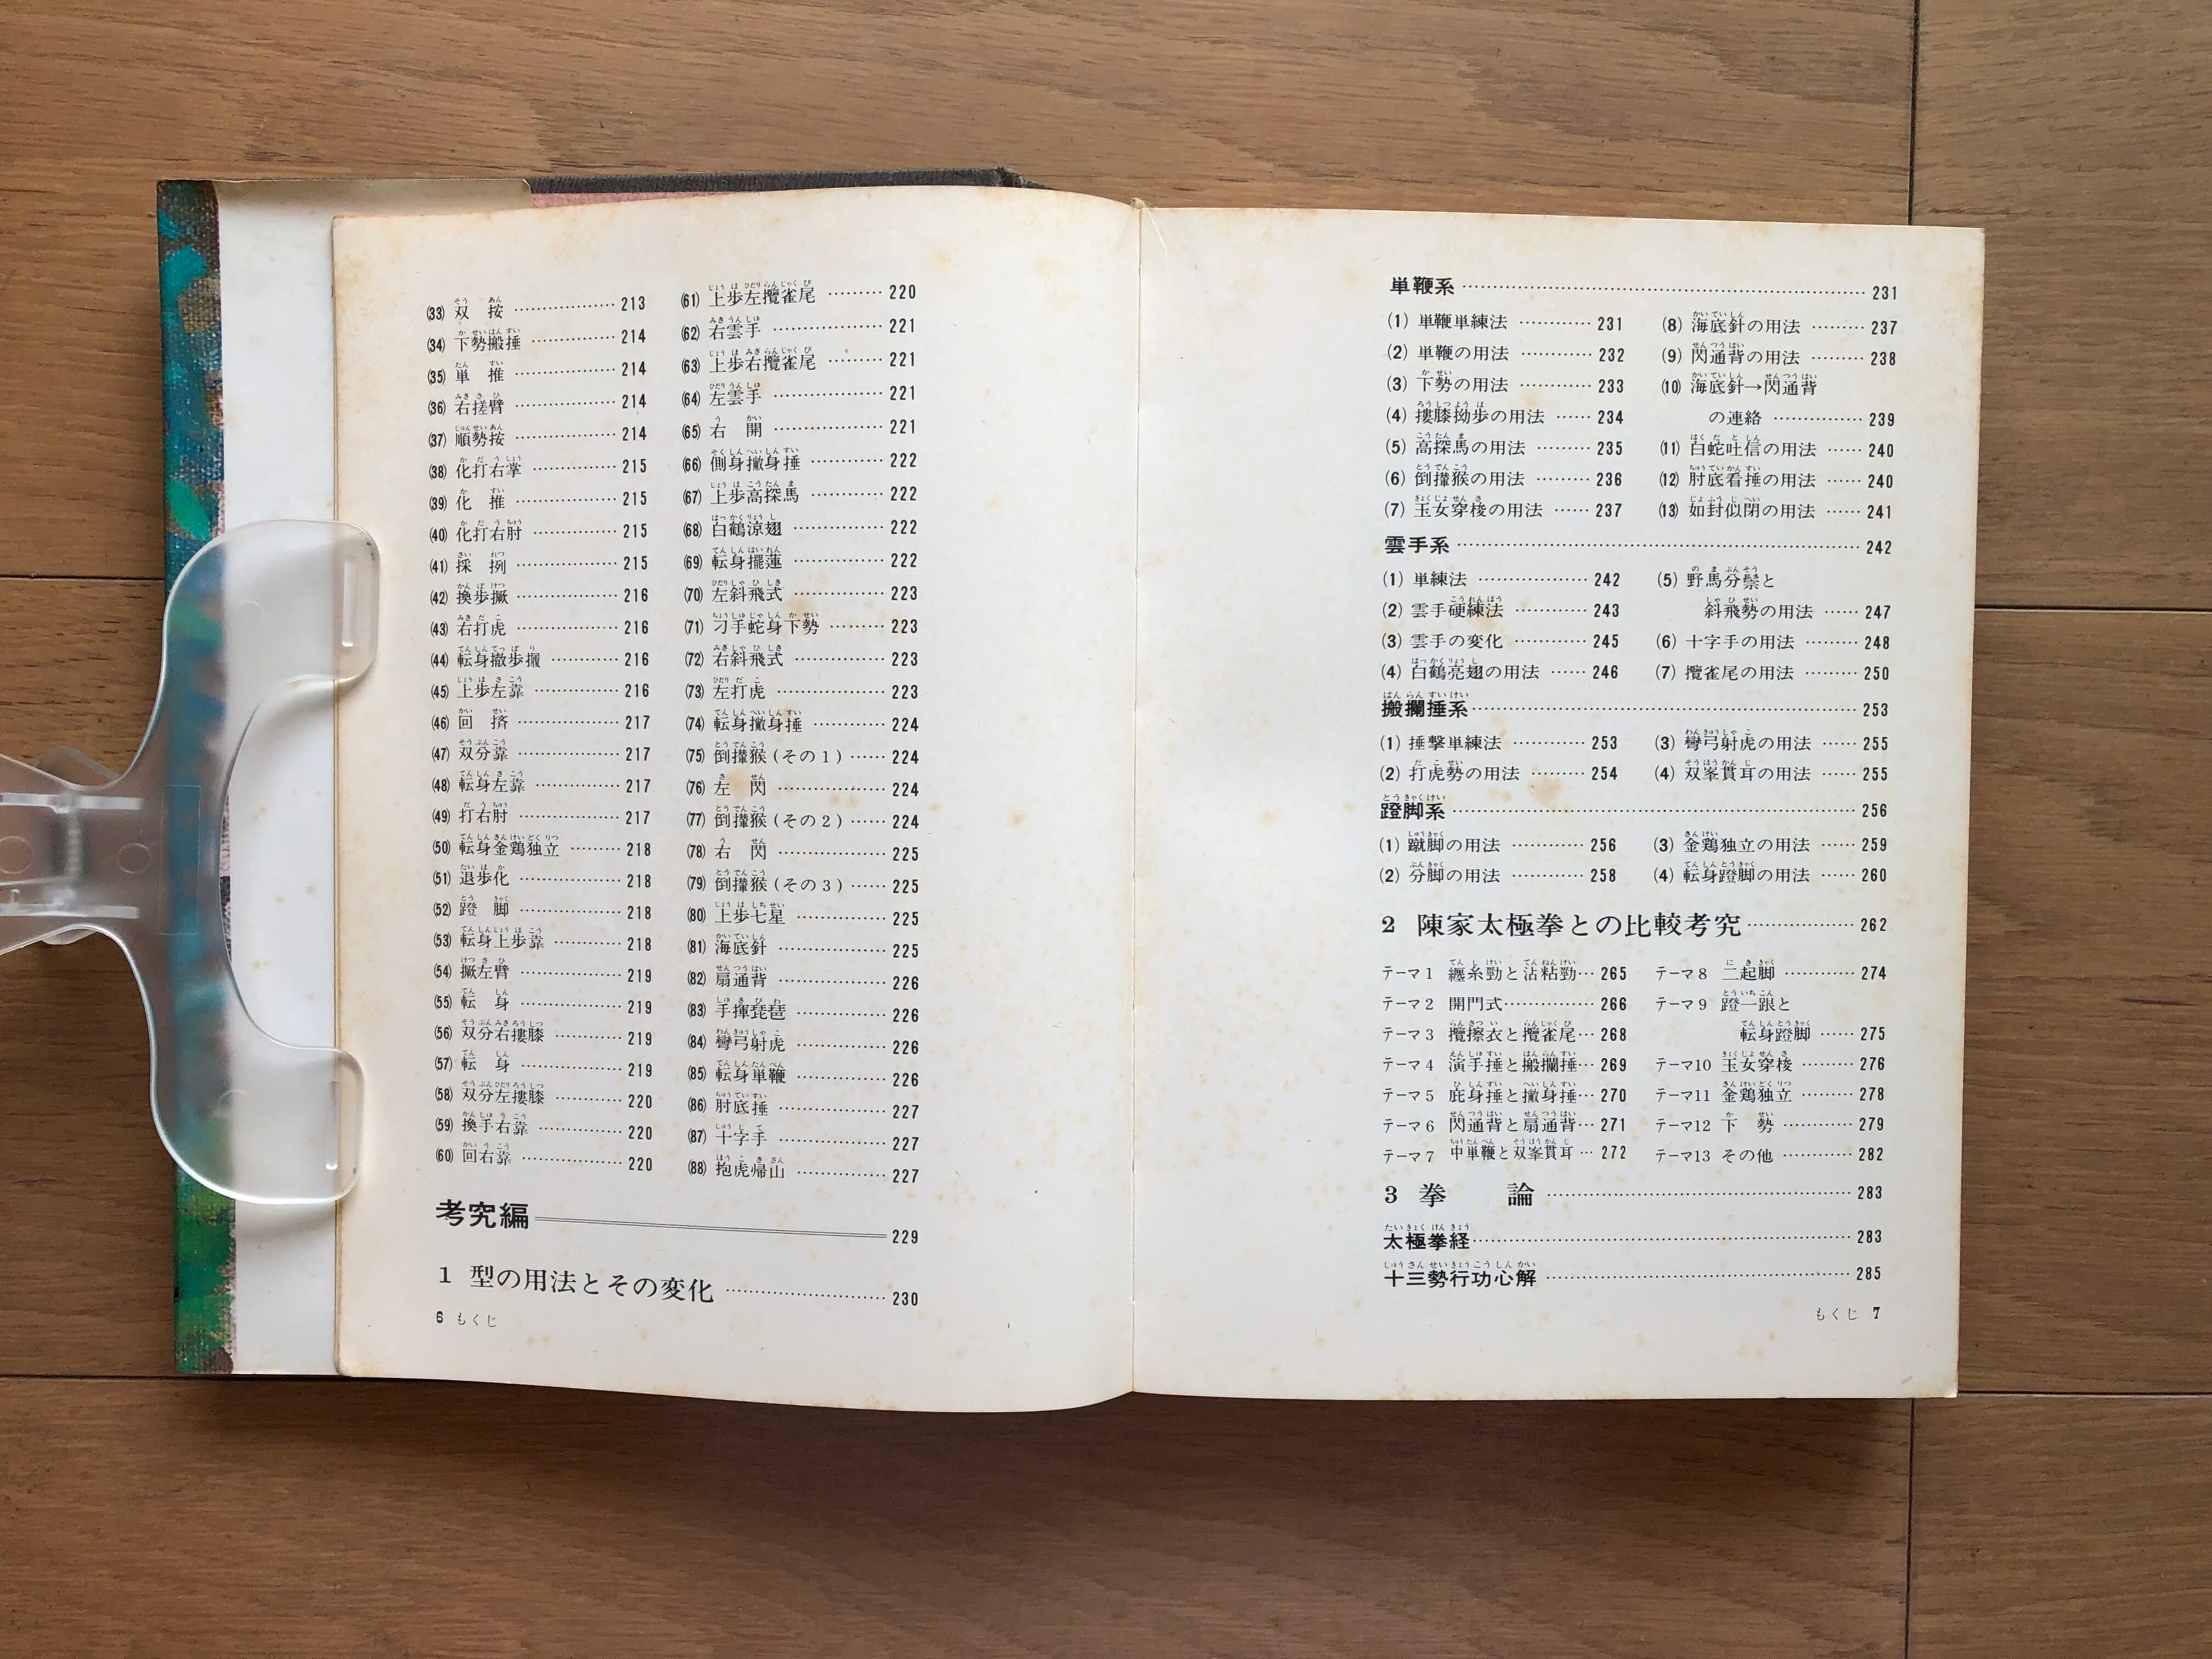 (33) 双按 ……… 213
(34) 下勢搬捶 ……… 214
(35) 単推 ……… 214
(36) 右搓臂 ……… 214
(37) 順勢按 ……… 214
(38) 化打右掌 ……… 215
(39) 化推 ……… 215
(40) 化打右肘 ……… 215
(41) 採挒 ……… 215
(42) 換歩撅 ……… 216
(43) 右打虎 ……… 216
(44) 転身撤歩 ……… 216
(45) 上歩左靠 ……… 216
(46) 回擠 ……… 217
(47) 双分靠 ……… 217
(48) 転身左靠 ……… 217
(49) 打右肘 ……… 217
(50) 転身金鶏独立 ……… 218
(51) 退歩化 ……… 218
(52) 蹬脚 ……… 218
(53) 転身上歩靠 ……… 218
(54) 撅左臂 ……… 219
(55) 転身 ……… 219
(56) 双分右摟膝 ……… 219
(57) 転身 ……… 219
(58) 双分左摟膝 ……… 220
(59) 換手右靠 ……… 220
(60) 回右靠 ……… 220
(61) 上歩左攬雀尾 ……… 220
(62) 右雲手 ……… 221
(63) 上歩右攬雀尾 ……… 221
(64) 左雲手 ……… 221
(65) 右開 ……… 221
(66) 側身撇身捶 ……… 222
(67) 上歩高探馬 ……… 222
(68) 白鶴涼翅 ……… 222
(69) 転身擺蓮 ……… 222
(70) 左斜飛式 ……… 223
(71) 刁手蛇身下勢 ……… 223
(72) 右斜飛式 ……… 223
(73) 左打虎 ……… 223
(74) 転身撇身捶 ……… 224
(75) 倒攆猴(その1) …… 224
(76) 左閃 ……… 224
(77) 倒攆猴(その2) …… 224
(78) 右閃 ……… 225
(79) 倒攆猴(その3) …… 225
(80) 上歩七星 ……… 225
(81) 海底針 ……… 225
(82) 扇通背 ……… 226
(83) 手揮琵琶 ……… 226
(84) 彎弓射虎 ……… 226
(85) 転身単鞭 ……… 226
(86) 肘底捶 ……… 227
(87) 十字手 ……… 227
(88) 抱虎帰山 ……… 227
考究編 229
1 型の用法とその変化 ……… 230
6 もくじ
単鞭系 ……… 231
(1) 単鞭単練法 ……… 231
(2) 単鞭の用法 ……… 232
(3) 下勢の用法 ……… 233
(4) 摟膝拗歩の用法 …… 234
(5) 高探馬の用法 ……… 235
(6) 倒攆猴の用法 ……… 236
(7) 玉女穿梭の用法 …… 237
(8) 海底針の用法 ……… 237
(9) 閃通背の用法 ……… 238
(10) 海底針→閃通背
の連絡 ……… 239
(11) 白蛇吐信の用法 …… 240
(12) 肘底看捶の用法 …… 240
(13) 如封似閉の用法 …… 241
雲手系 ……… 242
(1) 単練法 ……… 242
(2) 雲手硬練法 ……… 243
(3) 雲手の変化 ……… 245
(4) 白鶴亮翅の用法 …… 246
(5) 野馬分鬃と
斜飛勢の用法 …… 247
(6) 十字手の用法 ……… 248
(7) 攬雀尾の用法 ……… 250
搬攔捶系 ……… 253
(1) 捶撃単練法 ……… 253
(2) 打虎勢の用法 ……… 254
(3) 彎弓射虎の用法 …… 255
(4) 双峯貫耳の用法 …… 255
蹬脚系 ……… 256
(1) 蹴脚の用法 ……… 256
(2) 分脚の用法 ……… 258
(3) 金鶏独立の用法 …… 259
(4) 転身蹬脚の用法 …… 260
2 陳家太極拳との比較考究 ……… 262
テーマ1 纏糸勁と沾粘勁… 265
テーマ2 開門式 ……… 266
テーマ3 攬擦衣と攬雀尾… 268
テーマ4 演手捶と搬攔捶… 269
テーマ5 庇身捶と撇身捶… 270
テーマ6 閃通背と扇通背… 271
テーマ7 中単鞭と双峯貫耳… 272
テーマ8 二起脚 ……… 274
テーマ9 蹬一跟と
転身蹬脚 …… 275
テーマ10 玉女穿梭 ……… 276
テーマ11 金鶏独立 ……… 278
テーマ12 下勢 ……… 279
テーマ13 その他 ……… 282
3 拳論 ……… 283
太極拳経 ……… 283
十三勢行功心解 ……… 285
もくじ 7